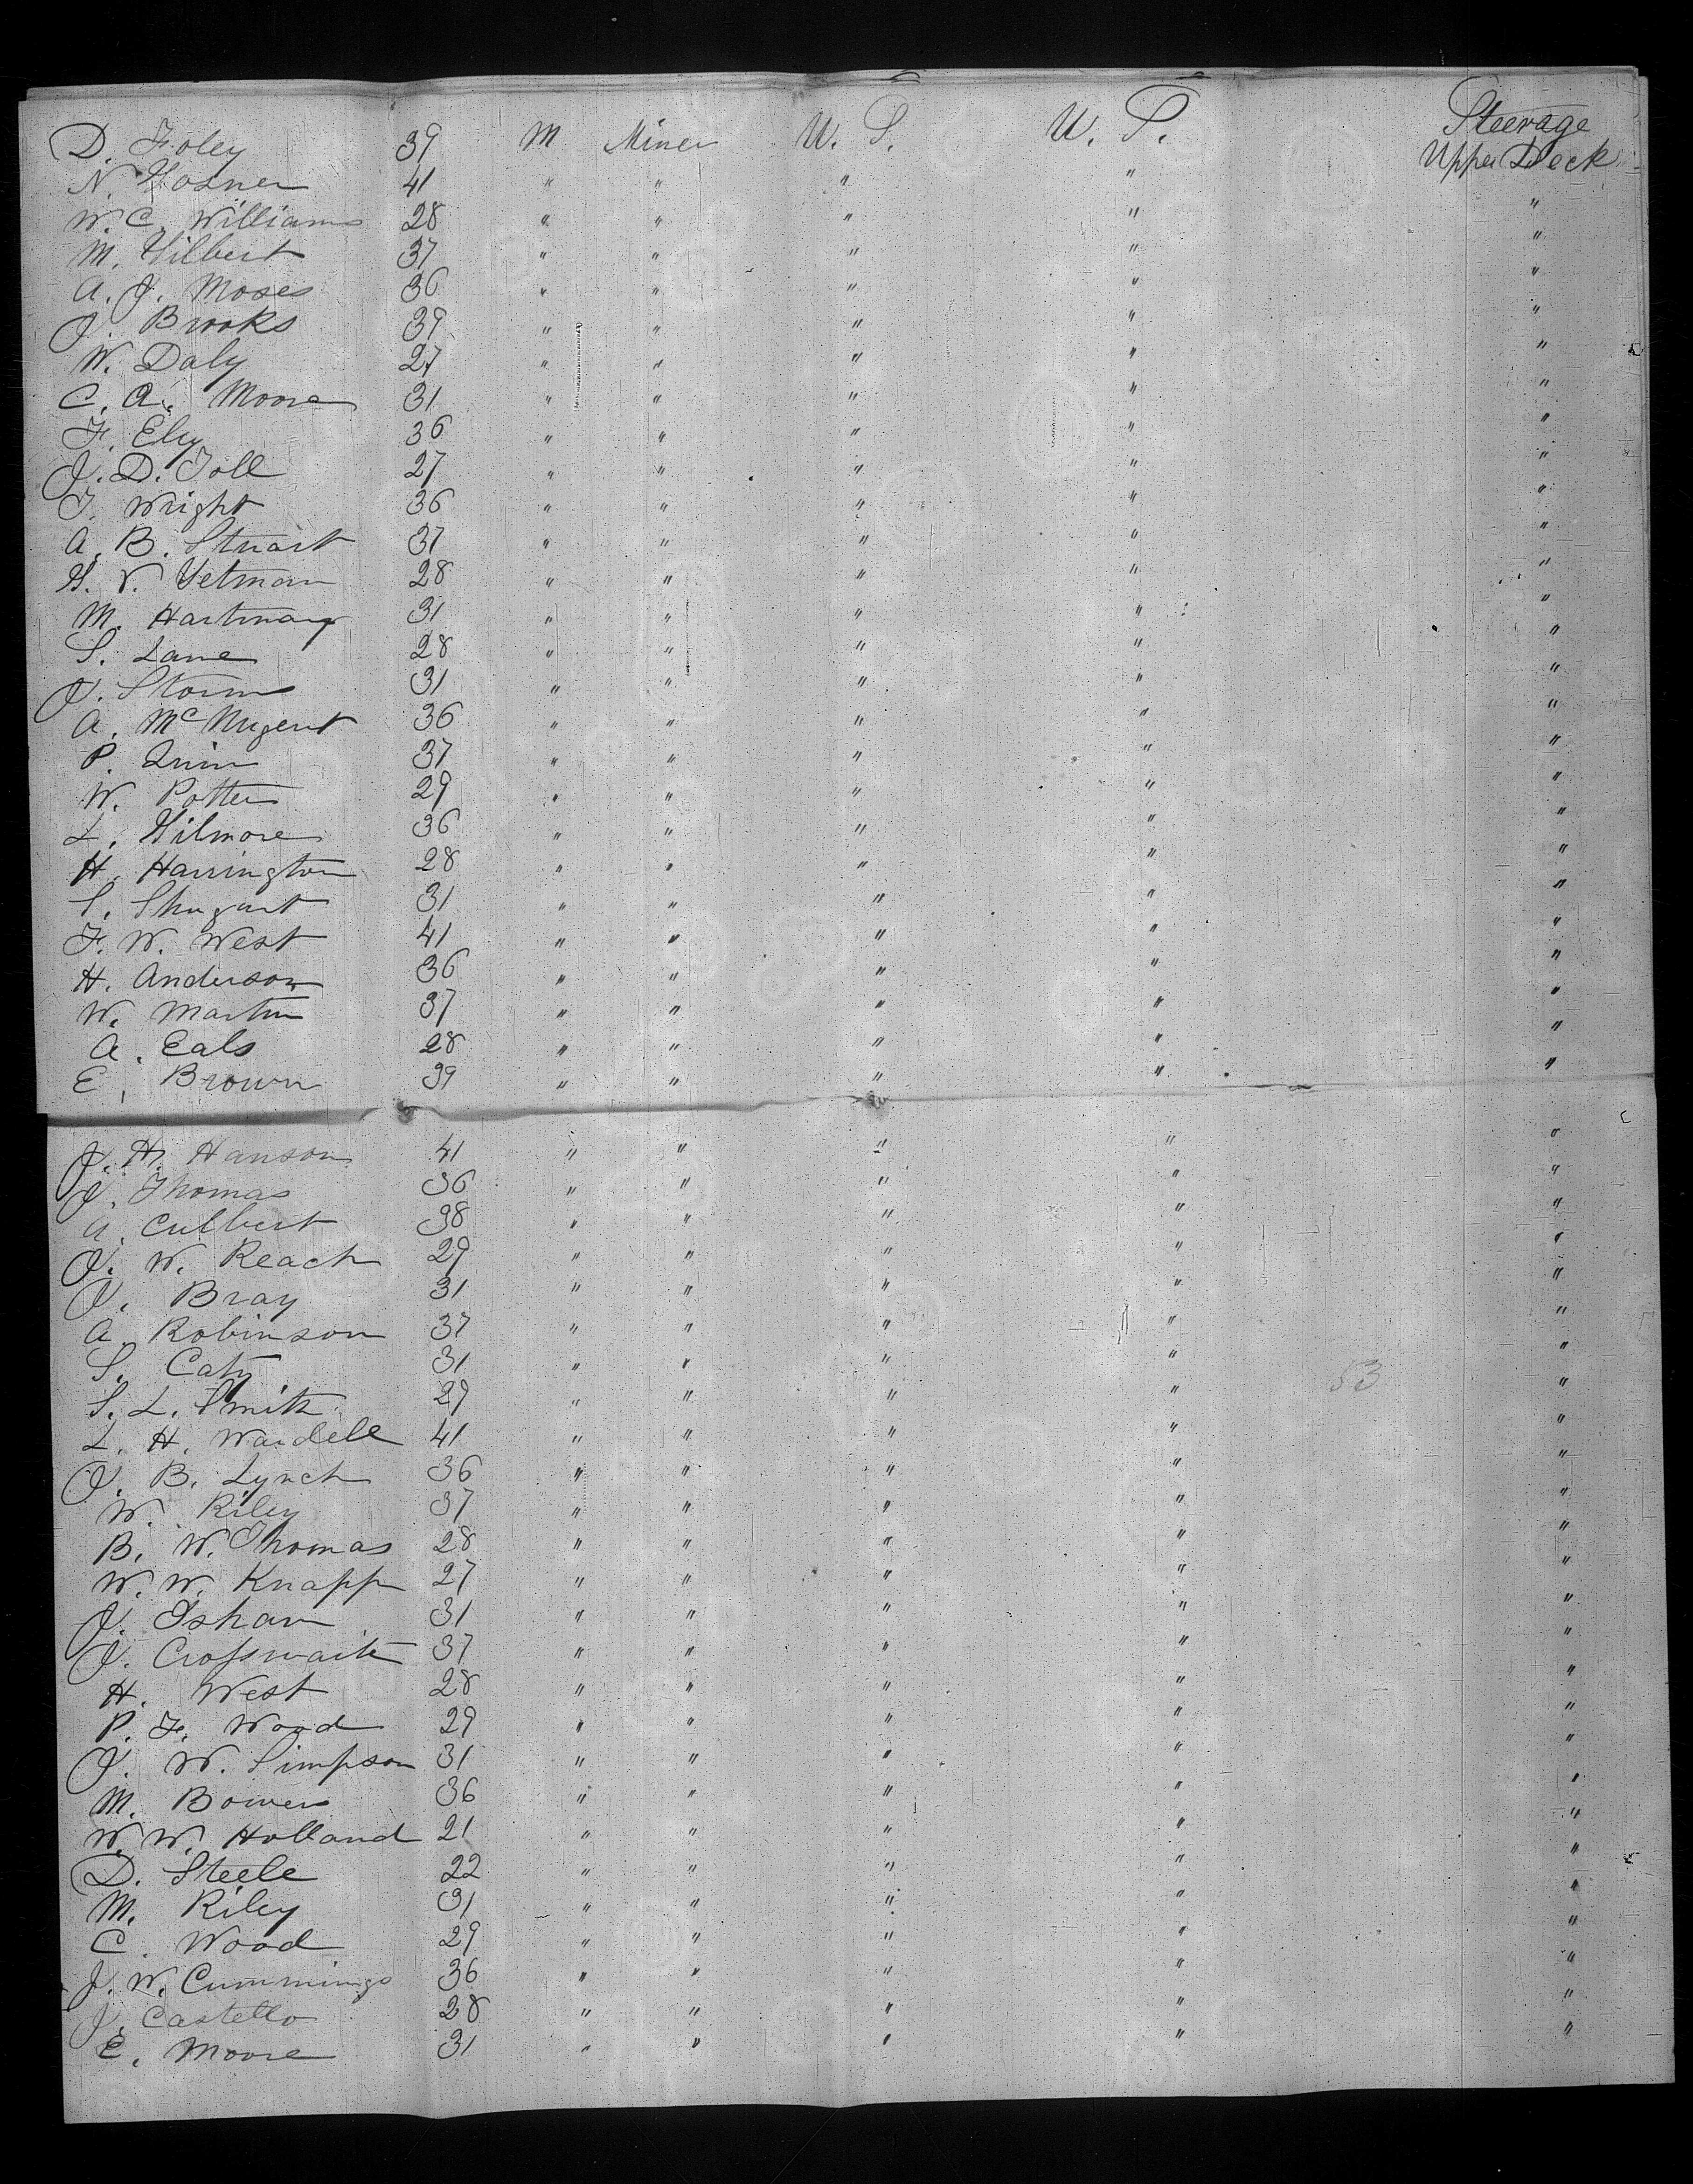 D. Foley 39 M Miner U. S. U. S. Steerage Upper Deck
N. Gosner 41 " " " " "
W. C. Williams 28 " " " " "
M. Gilbert 37 " " " " "
A. J. Moses 36 " " " " "
J. Brooks 39 " " " " "
W. Daly 27 " " " " "
C. A. Moore 31 " " " " "
F. Ely 36 " " " " "
J. D. Toll 27 " " " " "
T. Wright 36 " " " " "
A. B. Stuart 37 " " " " "
G. V. Yetman 28 " " " " "
M. Hartman 31 " " " " "
S. Lane 28 " " " " "
J. Storms 31 " " " " "
A. McNugent 36 " " " " "
P. Quinn 37 " " " " "
W. Potter 29 " " " " "
L. Gilmore 36 " " " " "
H. Harrington 28 " " " " "
S. Shugart 31 " " " " "
F. W. West 41 " " " " "
H. Anderson 36 " " " " "
W. Martin 37 " " " " "
A. Eals 28 " " " " "
E. Brown 39 " " " " "
J. H. Hanson 41 " " " " "
J. Thomas 36 " " " " "
A. Culbert 38 " " " " "
J. W. Reach 29 " " " " "
J. Bray 31 " " " " "
A. Robinson 37 " " " " "
S. Caty 31 " " " " 53 "
S. L. Smith 29 " " " " "
L. H. Wardell 41 " " " " "
J. B. Lynch 36 " " " " "
W. Riley 37 " " " " "
B. W. Thomas 28 " " " " "
W. W. Knapp 27 " " " " "
J. Isham 31 " " " " "
J. Crosswaite 37 " " " " "
H. West 28 " " " " "
P. F. Wood 29 " " " " "
J. W. Simpson 31 " " " " "
M. Bowers 36 " " " " "
W. W. Holland 21 " " " " "
D. Steele 22 " " " " "
M. Riley 31 " " " " "
C. Wood 29 " " " " "
J. W. Cummings 36 " " " " "
J. Castello 28 " " " " "
E. Moore 31 " " " " "